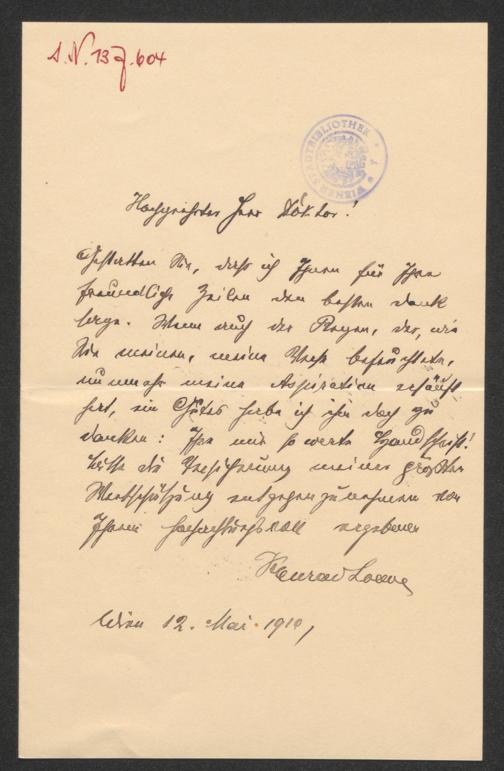 J.N. 137.604
WIENER STADTBIBLIOTHEK
Hochgeehrter Herr Doktor!
Gestatten Sie, daß ich Ihnen für Ihre
freundliche Zeilen den besten Dank
sage. Wenn auch der Regen, der, wie
Sie meinen, meine Verse befruchtete,
nunmehr meine Aspiration ersäuft
hat, ein Gutes habe ich ihm doch zu
danken: Ihre mir so werte Handschrift!
Bitte die Versicherung meiner größten
Wertschätzung entgegenzunehmen von
Ihrem hochachtungsvoll ergebenen
Konrad Loewe
Wien 12. Mai 1910,